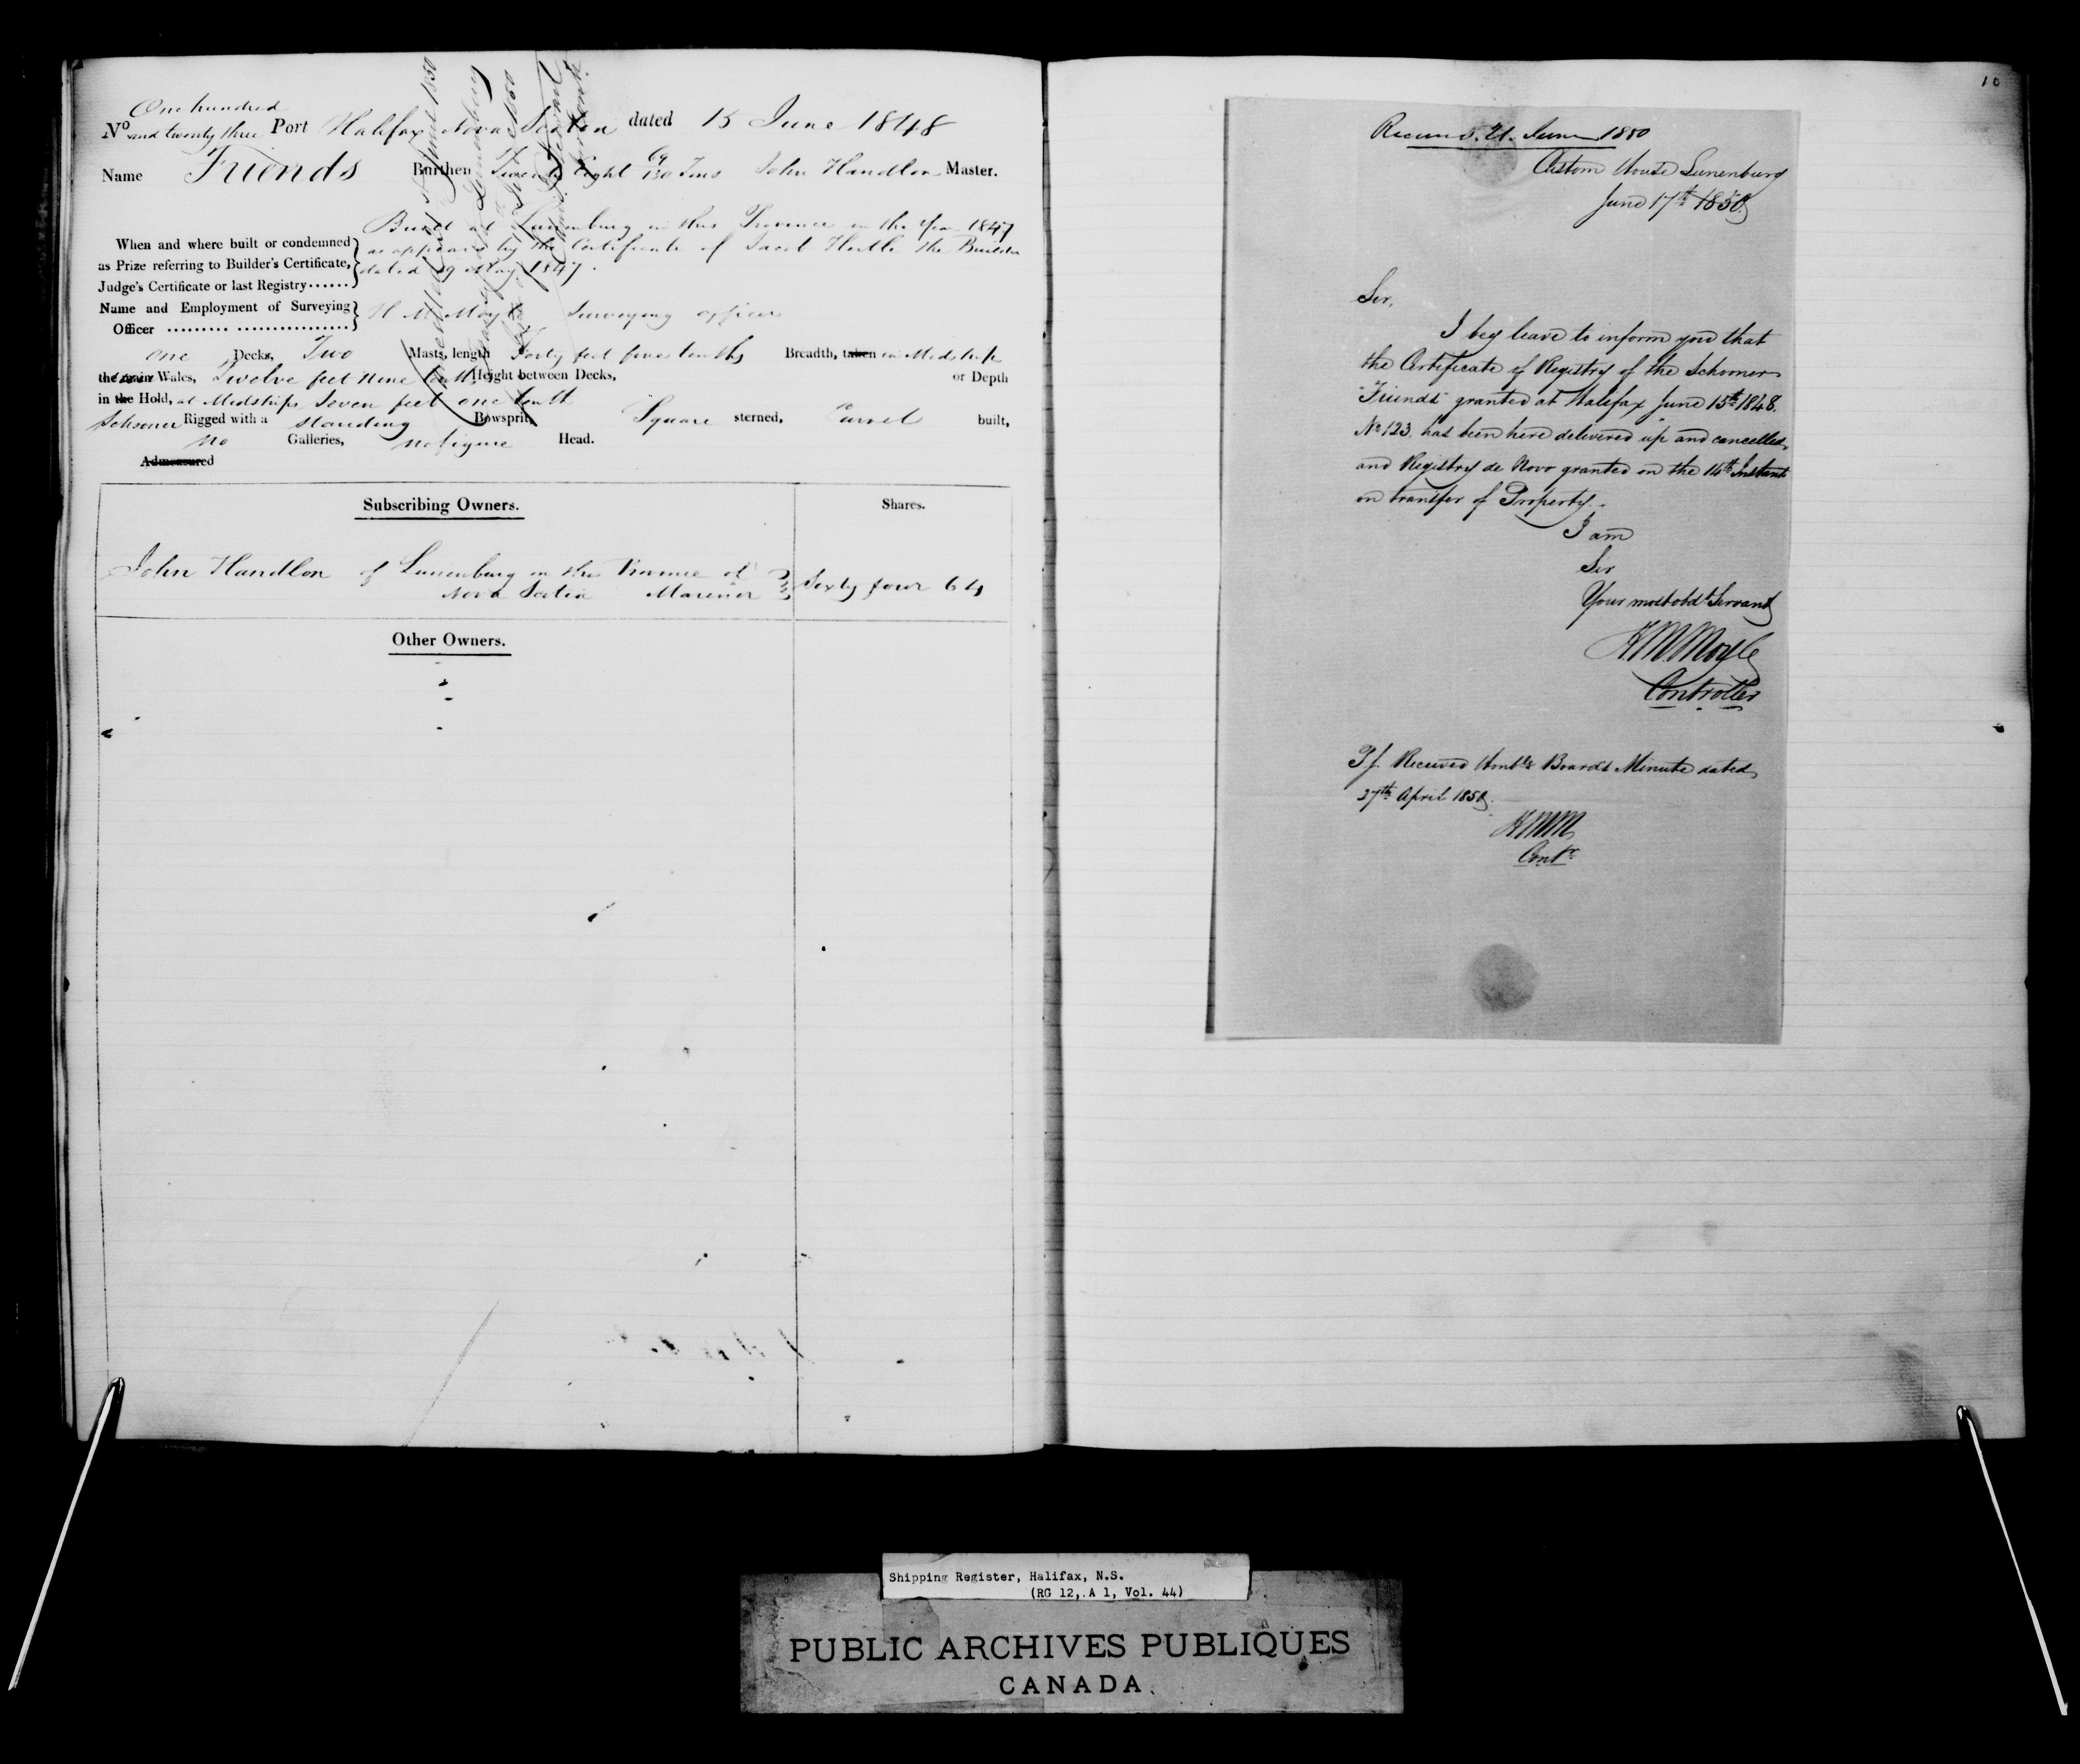 One hundred
No and twenty three Port Halifax Nova Scotia dated 15 June 1848
Name Friends Burthen Twenty Eight 69/130 Tons John Handlon Master.
Built at Lunenburg in this Province in the Year 1847
When and where built or condemned as appears by the Certificate of Jacob the Builder
as Prize referring to Builder's Certificate, dated 19 May 1847.
Judge's Certificate or last Registry......
Name and Employment of Surveying H M Moyle Surveying officer
Officer ......... ................
One Decks, Two Masts, length Forty feet five tenths Breadth, taken in Midships
the main Wales, Twelve feet Nine tenths Height between Decks, or Depth
in the Hold, at Midships Seven feet one tenth
Schooner Rigged with a Standing Bowsprit, Square sterned, Carvel built,
No Galleries, no figure Head.
Admeasured
Subscribing Owners. Shares.
John Handlon of Lunenburg in this Province of
Nova Scotia Mariner Sixty four 64
Other Owners.
10
Received. 21. June 1850
Custom House Lunenburg
June 17th 1850.
Sir,
I beg leave to inform you that
the Certificate of Registry of the Schooner
"Friends" granted at Halifax June 15th 1848.
No 123, has been here delivered up and cancelled,
and Registry de Novo granted on the 14th Instant
on transfer of Property.
I am
Sir
Your most obdt Servant
H M Moyle
Controller
Received Honble Board's Minute dated
27th April 1850.
HMM
Contr
Shipping Register, Halifax, N.S.
(RG 12, A 1, Vol. 44)
PUBLIC ARCHIVES PUBLIQUES
CANADA